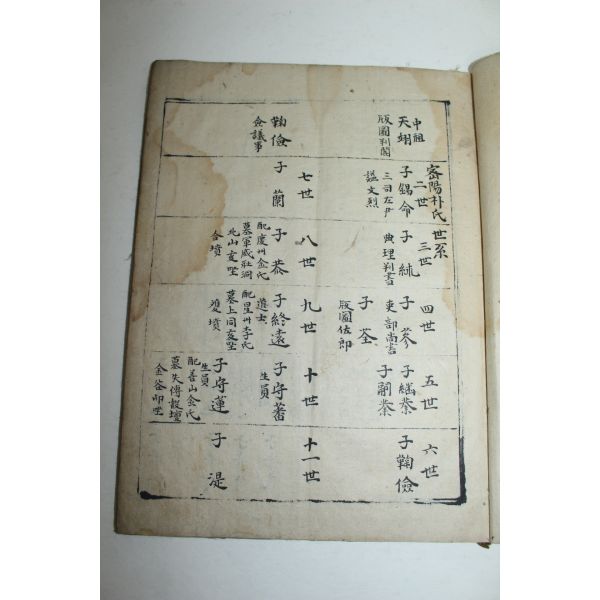 密陽朴氏世系
中祖
天翊
版圖判閣
二世
子錫命
三司左尹
諡文烈
三世
子絿
典理判書
四世
子蔘
吏部尚書
子荃
版圖佐郎
五世
子繼業
子嗣業
六世
子鞠儉
鞠儉
僉議事
七世
子蘭
八世
子恭
配慶州金氏
墓軍威壯洞
北山亥坐
合墳
九世
子終遠
進士
配星州李氏
墓上同亥坐
雙墳
十世
子守蕃
生員
子守蓮
生員
配善山金氏
墓失傳設壇
金谷卯坐
十一世
子湜